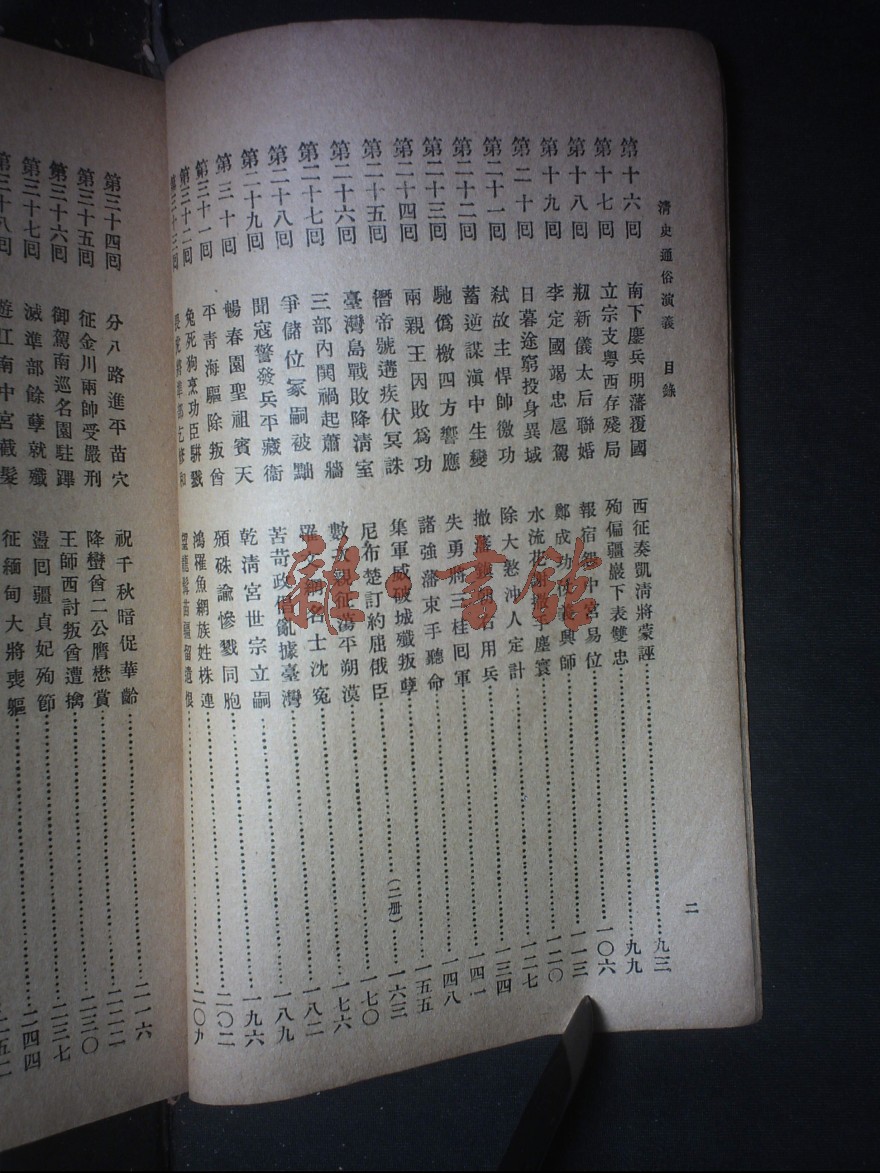 清史通俗演義 目錄
二
第十六回 南下鏖兵明藩覆國 西征奏凱淸將蒙誣 九三
第十七回 立宗支粤西存殘局 殉偏疆巖下表雙忠 九九
第十八回 剏新儀太后聯婚 報宿怨中宮易位 一〇六
第十九回 李定國竭忠扈駕 鄭成功仗義興師 一一三
第二十回 日暮途窮投身異域 水流花謝撒手塵寰 一二〇
第二十一回 弒故主悍師徼功 除大憝沖人定計 一二七
第二十二回 蓄逆謀滇中生變 撤藩鎭朝右用兵 一三四
第二十三回 馳僞檄四方響應 失勇將三桂回軍 一四一
第二十四回 兩親王因敗爲功 諸強藩束手聽命 一四八
第二十五回 僭帝號遘疾伏冥誅 集軍威破城殲叛孽 一五五
第二十六回 臺灣島戰敗降淸室 尼布楚訂約屈俄臣 (二册) 一六三
第二十七回 三部內閧禍起蕭牆 數次親征蕩平朔漠 一七〇
第二十八回 爭儲位冢嗣被黜 罹文網名士沈冤 一七六
第二十九回 聞寇警發兵平藏衞 苦苛政倡亂據臺灣 一八二
第三十回 暢春園聖祖賓天 乾淸宮世宗立嗣 一八九
第三十一回 平靑海驅除叛酋 頒硃諭慘戮同胞 一九六
第三十二回 兔死狗烹功臣騈戮 鴻羅魚網族姓株連 二〇二
第三十三回 二〇九
第三十四回 分八路進平苗穴 祝千秋暗促華齡 二一六
第三十五回 征金川兩帥受嚴刑 降蠻酋二公膺懋賞 二二二
第三十六回 御駕南巡名園駐蹕 王師西討叛酋遭擒 二三〇
第三十七回 滅準部餘孽就殲 盪回疆貞妃殉節 二三七
第三十八回 遊江南中宮截髮 征緬甸大將喪軀 二四四
雜·書館